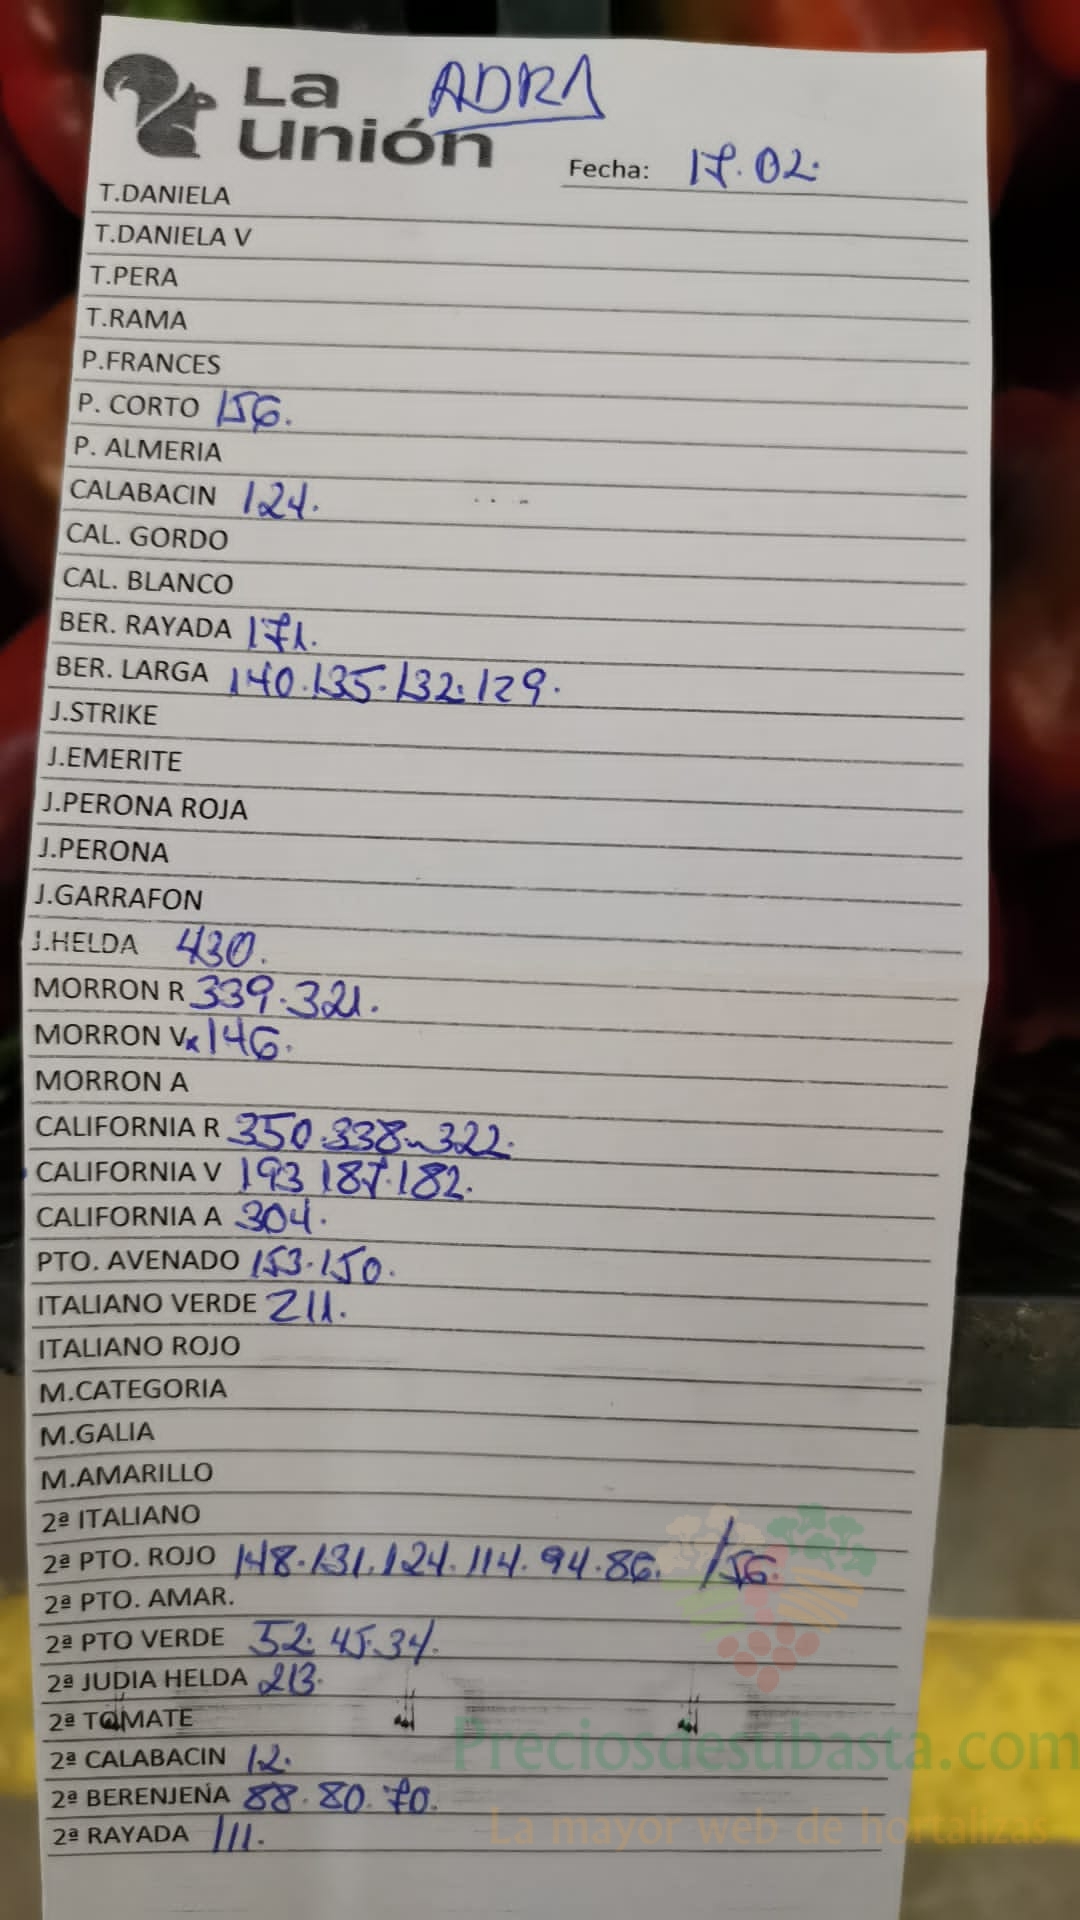 La Unión ADRA
Fecha: 17.02.
T.DANIELA
T.DANIELA V
T.PERA
T.RAMA
P.FRANCES
P. CORTO 156.
P. ALMERIA
CALABACIN 124.
CAL. GORDO
CAL. BLANCO
BER. RAYADA 171.
BER. LARGA 140.135.132.129.
J.STRIKE
J.EMERITE
J.PERONA ROJA
J.PERONA
J.GARRAFON
J.HELDA 430.
MORRON R 339.321.
MORRON V x 146.
MORRON A
CALIFORNIA R 350.338.322.
CALIFORNIA V 193 187.182.
CALIFORNIA A 304.
PTO. AVENADO 153.150.
ITALIANO VERDE 211.
ITALIANO ROJO
M.CATEGORIA
M.GALIA
M.AMARILLO
2ª ITALIANO
2ª PTO. ROJO 148.131.124.114.94.86. /56.
2ª PTO. AMAR.
2ª PTO VERDE 52.45.34.
2ª JUDIA HELDA 213.
2ª TOMATE
2ª CALABACIN 12.
2ª BERENJENA 88.80.70.
2ª RAYADA 111.
Preciosdesubasta.com
La mayor web de hortalizas